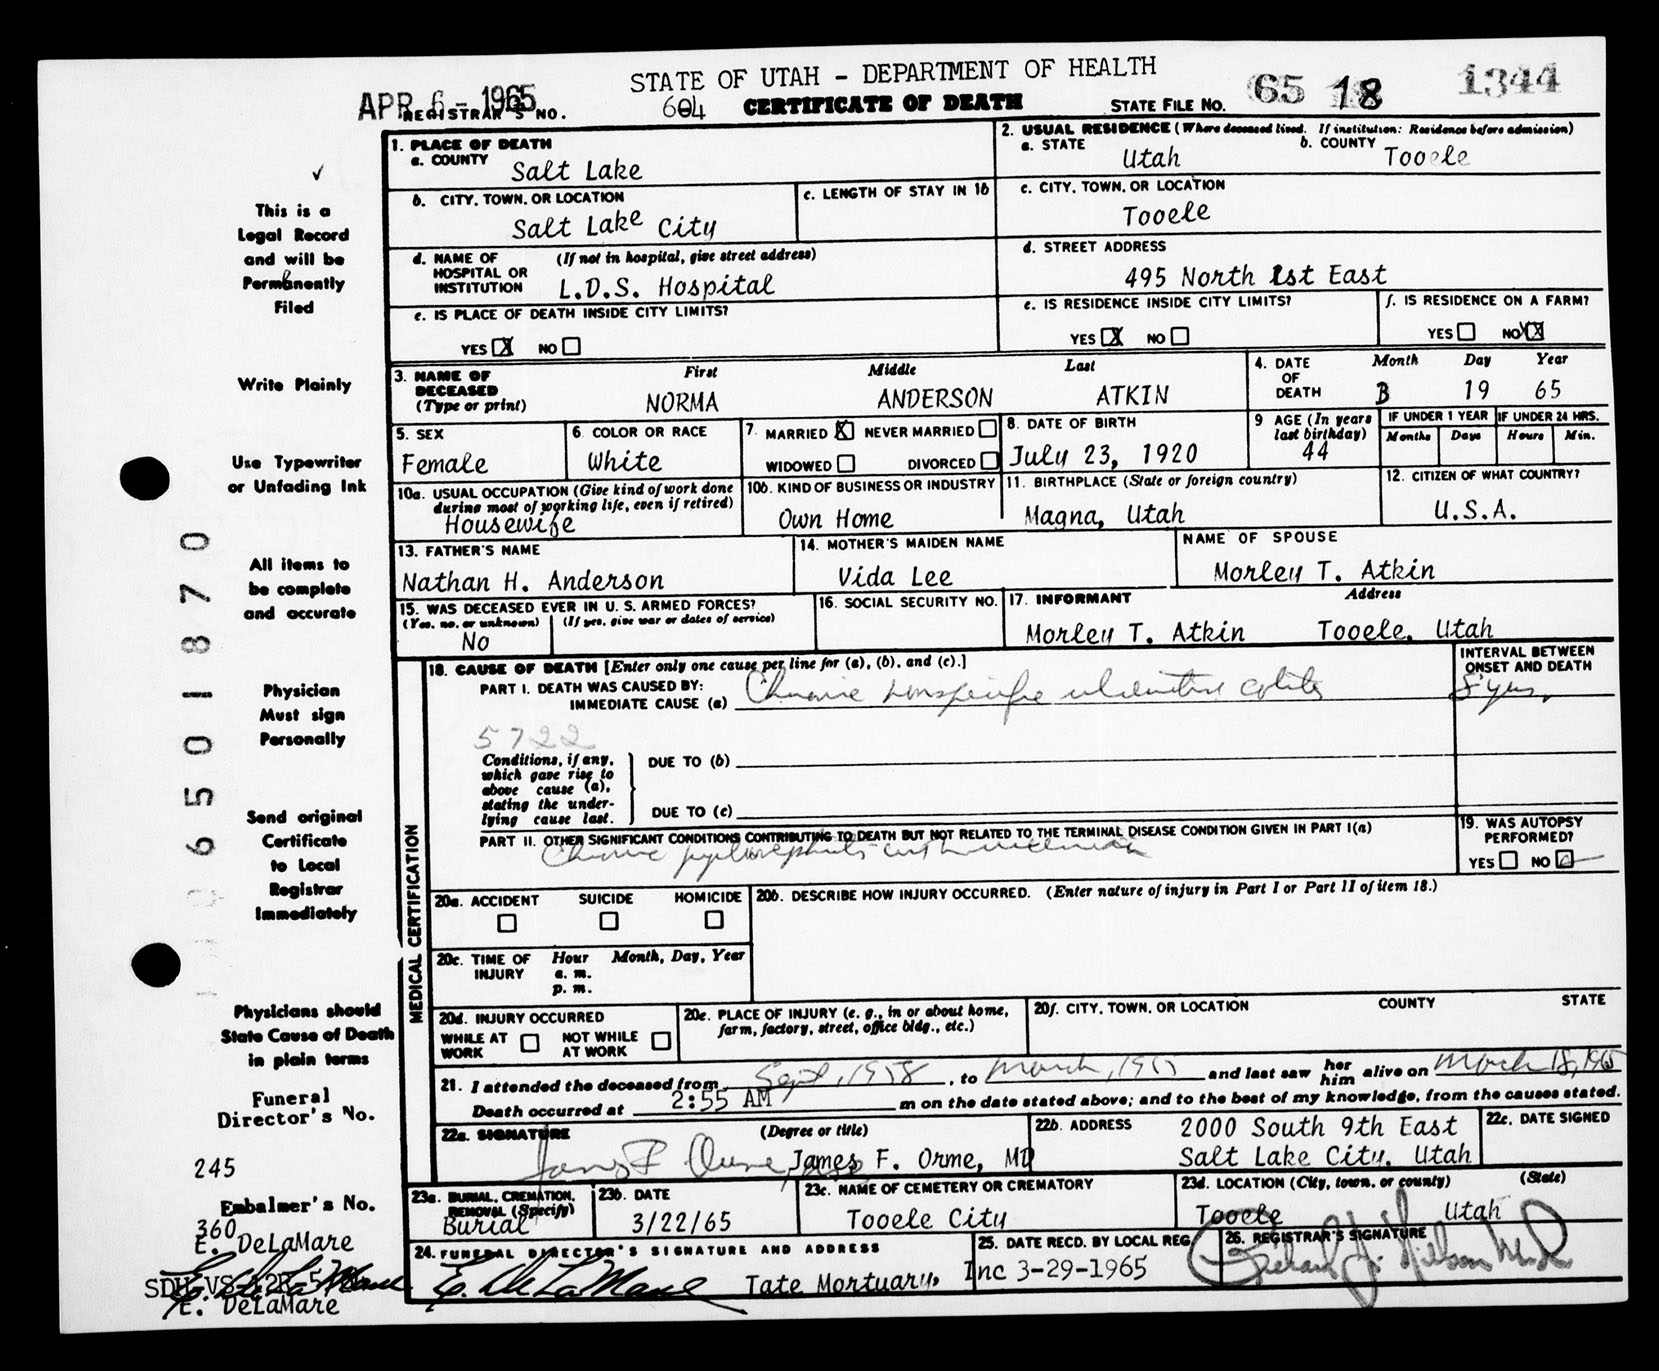 STATE OF UTAH - DEPARTMENT OF HEALTH
APR 6 - 1965
REGISTRAR'S NO. 604 CERTIFICATE OF DEATH STATE FILE NO. 65 18 1344
This is a Legal Record and will be Permanently Filed
Write Plainly
Use Typewriter or Unfading Ink
All items to be complete and accurate
Physician Must sign Personally
Send original Certificate to Local Registrar Immediately
Physicians should State Cause of Death in plain terms
Funeral Director's No.
245
Embalmer's No.
360
E. DeLaMare
E. DeLaMare
0 6 5 0 1 8 7 0
1. PLACE OF DEATH
a. COUNTY Salt Lake
b. CITY, TOWN, OR LOCATION Salt Lake City
c. LENGTH OF STAY IN 1b
d. NAME OF HOSPITAL OR INSTITUTION (If not in hospital, give street address) L.D.S. Hospital
e. IS PLACE OF DEATH INSIDE CITY LIMITS?
YES X NO
2. USUAL RESIDENCE (Where deceased lived. If institution: Residence before admission)
a. STATE Utah b. COUNTY Tooele
c. CITY, TOWN, OR LOCATION Tooele
d. STREET ADDRESS 495 North 1st East
e. IS RESIDENCE INSIDE CITY LIMITS?
YES X NO
f. IS RESIDENCE ON A FARM?
YES NO X
3. NAME OF DECEASED (Type or print)
First Middle Last
NORMA ANDERSON ATKIN
4. DATE OF DEATH Month Day Year
19 65
5. SEX Female
6. COLOR OR RACE White
7. MARRIED X NEVER MARRIED
WIDOWED DIVORCED
8. DATE OF BIRTH July 23, 1920
9 AGE (In years last birthday) 44
IF UNDER 1 YEAR Months Days
IF UNDER 24 HRS. Hours Min.
10a. USUAL OCCUPATION (Give kind of work done during most of working life, even if retired)
Housewife
10b. KIND OF BUSINESS OR INDUSTRY
Own Home
11. BIRTHPLACE (State or foreign country)
Magna, Utah
12. CITIZEN OF WHAT COUNTRY?
U.S.A.
13. FATHER'S NAME
Nathan H. Anderson
14. MOTHER'S MAIDEN NAME
Vida Lee
NAME OF SPOUSE
Morley T. Atkin
15. WAS DECEASED EVER IN U. S. ARMED FORCES?
(Yes, no, or unknown) (If yes, give war or dates of service)
No
16. SOCIAL SECURITY NO.
17. INFORMANT Address
Morley T. Atkin Tooele, Utah
MEDICAL CERTIFICATION
18. CAUSE OF DEATH [Enter only one cause per line for (a), (b), and (c).]
INTERVAL BETWEEN ONSET AND DEATH
PART I. DEATH WAS CAUSED BY:
IMMEDIATE CAUSE (a) Chronic nonspecific ulcerative colitis 8 yrs.
5722
Conditions, if any, which gave rise to above cause (a), stating the underlying cause last.
DUE TO (b)
DUE TO (c)
PART II. OTHER SIGNIFICANT CONDITIONS CONTRIBUTING TO DEATH BUT NOT RELATED TO THE TERMINAL DISEASE CONDITION GIVEN IN PART I(a)
Chronic pyelonephritis
19. WAS AUTOPSY PERFORMED?
YES NO
20a. ACCIDENT SUICIDE HOMICIDE
20b. DESCRIBE HOW INJURY OCCURRED. (Enter nature of injury in Part I or Part II of item 18.)
20c. TIME OF INJURY Hour Month, Day, Year
a. m.
p. m.
20d. INJURY OCCURRED
WHILE AT WORK NOT WHILE AT WORK
20e. PLACE OF INJURY (e. g., in or about home, farm, factory, street, office bldg., etc.)
20f. CITY, TOWN, OR LOCATION COUNTY STATE
21. I attended the deceased from Sept, 1958, to March, and last saw her him alive on March 18, 1965
Death occurred at 2:55 AM m on the date stated above; and to the best of my knowledge, from the causes stated.
22a. SIGNATURE (Degree or title)
James F Orme James F. Orme, MD
22b. ADDRESS 2000 South 9th East
Salt Lake City, Utah
22c. DATE SIGNED
23a. BURIAL, CREMATION, REMOVAL (Specify)
Burial
23b. DATE
3/22/65
23c. NAME OF CEMETERY OR CREMATORY
Tooele City
23d. LOCATION (City, town, or county) (State)
Tooele Utah
24. FUNERAL DIRECTOR'S SIGNATURE AND ADDRESS
E. DeLaMare Tate Mortuary, Inc
25. DATE RECD. BY LOCAL REG.
3-29-1965
26. REGISTRAR'S SIGNATURE